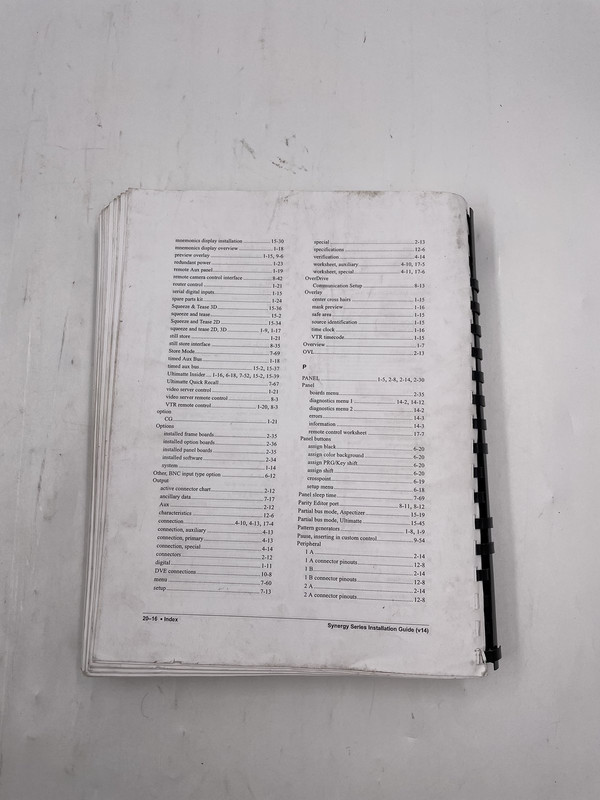 mnemonics display installation 15-30
mnemonics display overview 1-18
preview overlay 1-15, 9-6
redundant power 1-23
remote Aux panel 1-19
remote camera control interface 8-42
router control 1-21
serial digital inputs 1-13
spare parts kit 1-24
Squeeze & Tease 3D 15-36
squeeze and tease 15-2
Squeeze and Tease 2D 15-34
squeeze and tease 2D, 3D 1-9, 1-17
still store 1-21
still store interface 8-35
Store Mode 7-69
timed Aux Bus 1-18
timed aux bus 15-2, 15-37
Ultimatte Insider 1-16, 6-18, 7-52, 15-2, 15-39
Ultimatte Quick Recall 7-67
video server control 1-21
video server remote control 8-3
VTR remote control 1-20, 8-3
option
CG 1-21
Options
installed frame boards 2-35
installed option boards 2-36
installed panel boards 2-35
installed software 2-34
system 1-14
Other, BNC input type option 6-12
Output
active connector chart 2-12
ancillary data 7-17
Aux 2-12
characteristics 12-6
connection 4-10, 4-13, 17-4
connection, auxiliary 4-13
connection, primary 4-13
connection, special 4-14
connectors 2-12
digital 1-11
DVE connections 10-8
menu 7-60
setup 7-13
special 2-13
specifications 12-6
verification 4-14
worksheet, auxiliary 4-10, 17-5
worksheet, special 4-11, 17-6
OverDrive
Communication Setup 8-13
Overlay
center cross hairs 1-15
mask preview 1-16
safe area 1-15
source identification 1-15
time clock 1-16
VTR timecode 1-15
Overview 1-7
OVL 2-13
P
PANEL 1-5, 2-8, 2-14, 2-30
Panel
boards menu 2-35
diagnostics menu 1 14-2, 14-12
diagnostics menu 2 14-2
errors 14-3
information 14-3
remote control worksheet 17-7
Panel buttons
assign black 6-20
assign color background 6-20
assign PRG/Key shift 6-20
assign shift 6-20
crosspoint 6-19
setup menu 6-18
Panel sleep time 7-69
Parity Editor port 8-11, 8-12
Partial bus mode, Anpetizer 15-19
Partial bus mode, Ultimatte 15-45
Pattern generators 1-8, 1-9
Pause, inserting in custom control 9-54
Peripheral
1 A 2-14
1 A connector pinouts 12-8
1 B 2-14
1 B connector pinouts 12-8
2 A 2-14
2 A connector pinouts 12-8
20–16 • Index
Synergy Series Installation Guide (v14)